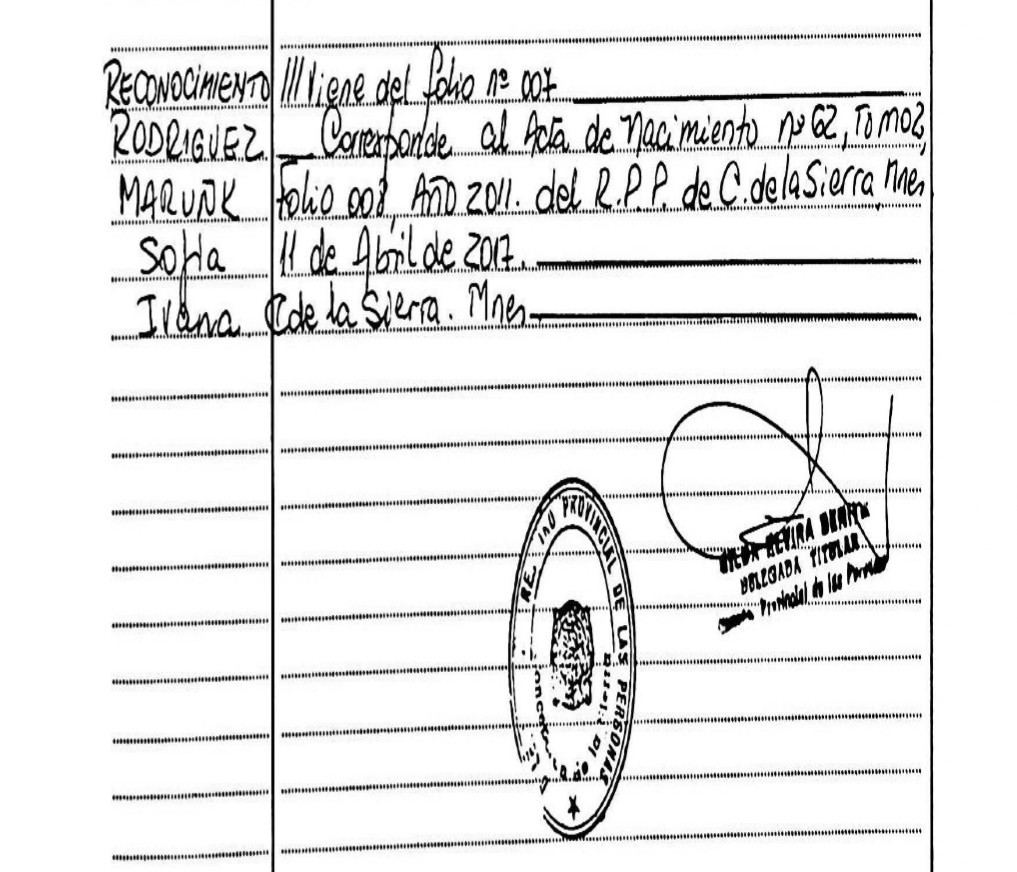 RECONOCIMIENTO
RODRIGUEZ
MARUÑK
Sofia
Ivana
/// Viene del folio nº 007
Corresponde al Acta de Nacimiento nº 62, TOMO 2,
Folio 008, AÑO 2011. del R.P.P. de C. de la Sierra, Mnes
11 de Abril de 2017.
C de la Sierra. Mnes
ELVIRA
DELEGADA TITULAR
Provincial de las
PROVINCIAL DE LAS PERSONAS
de la Sierra